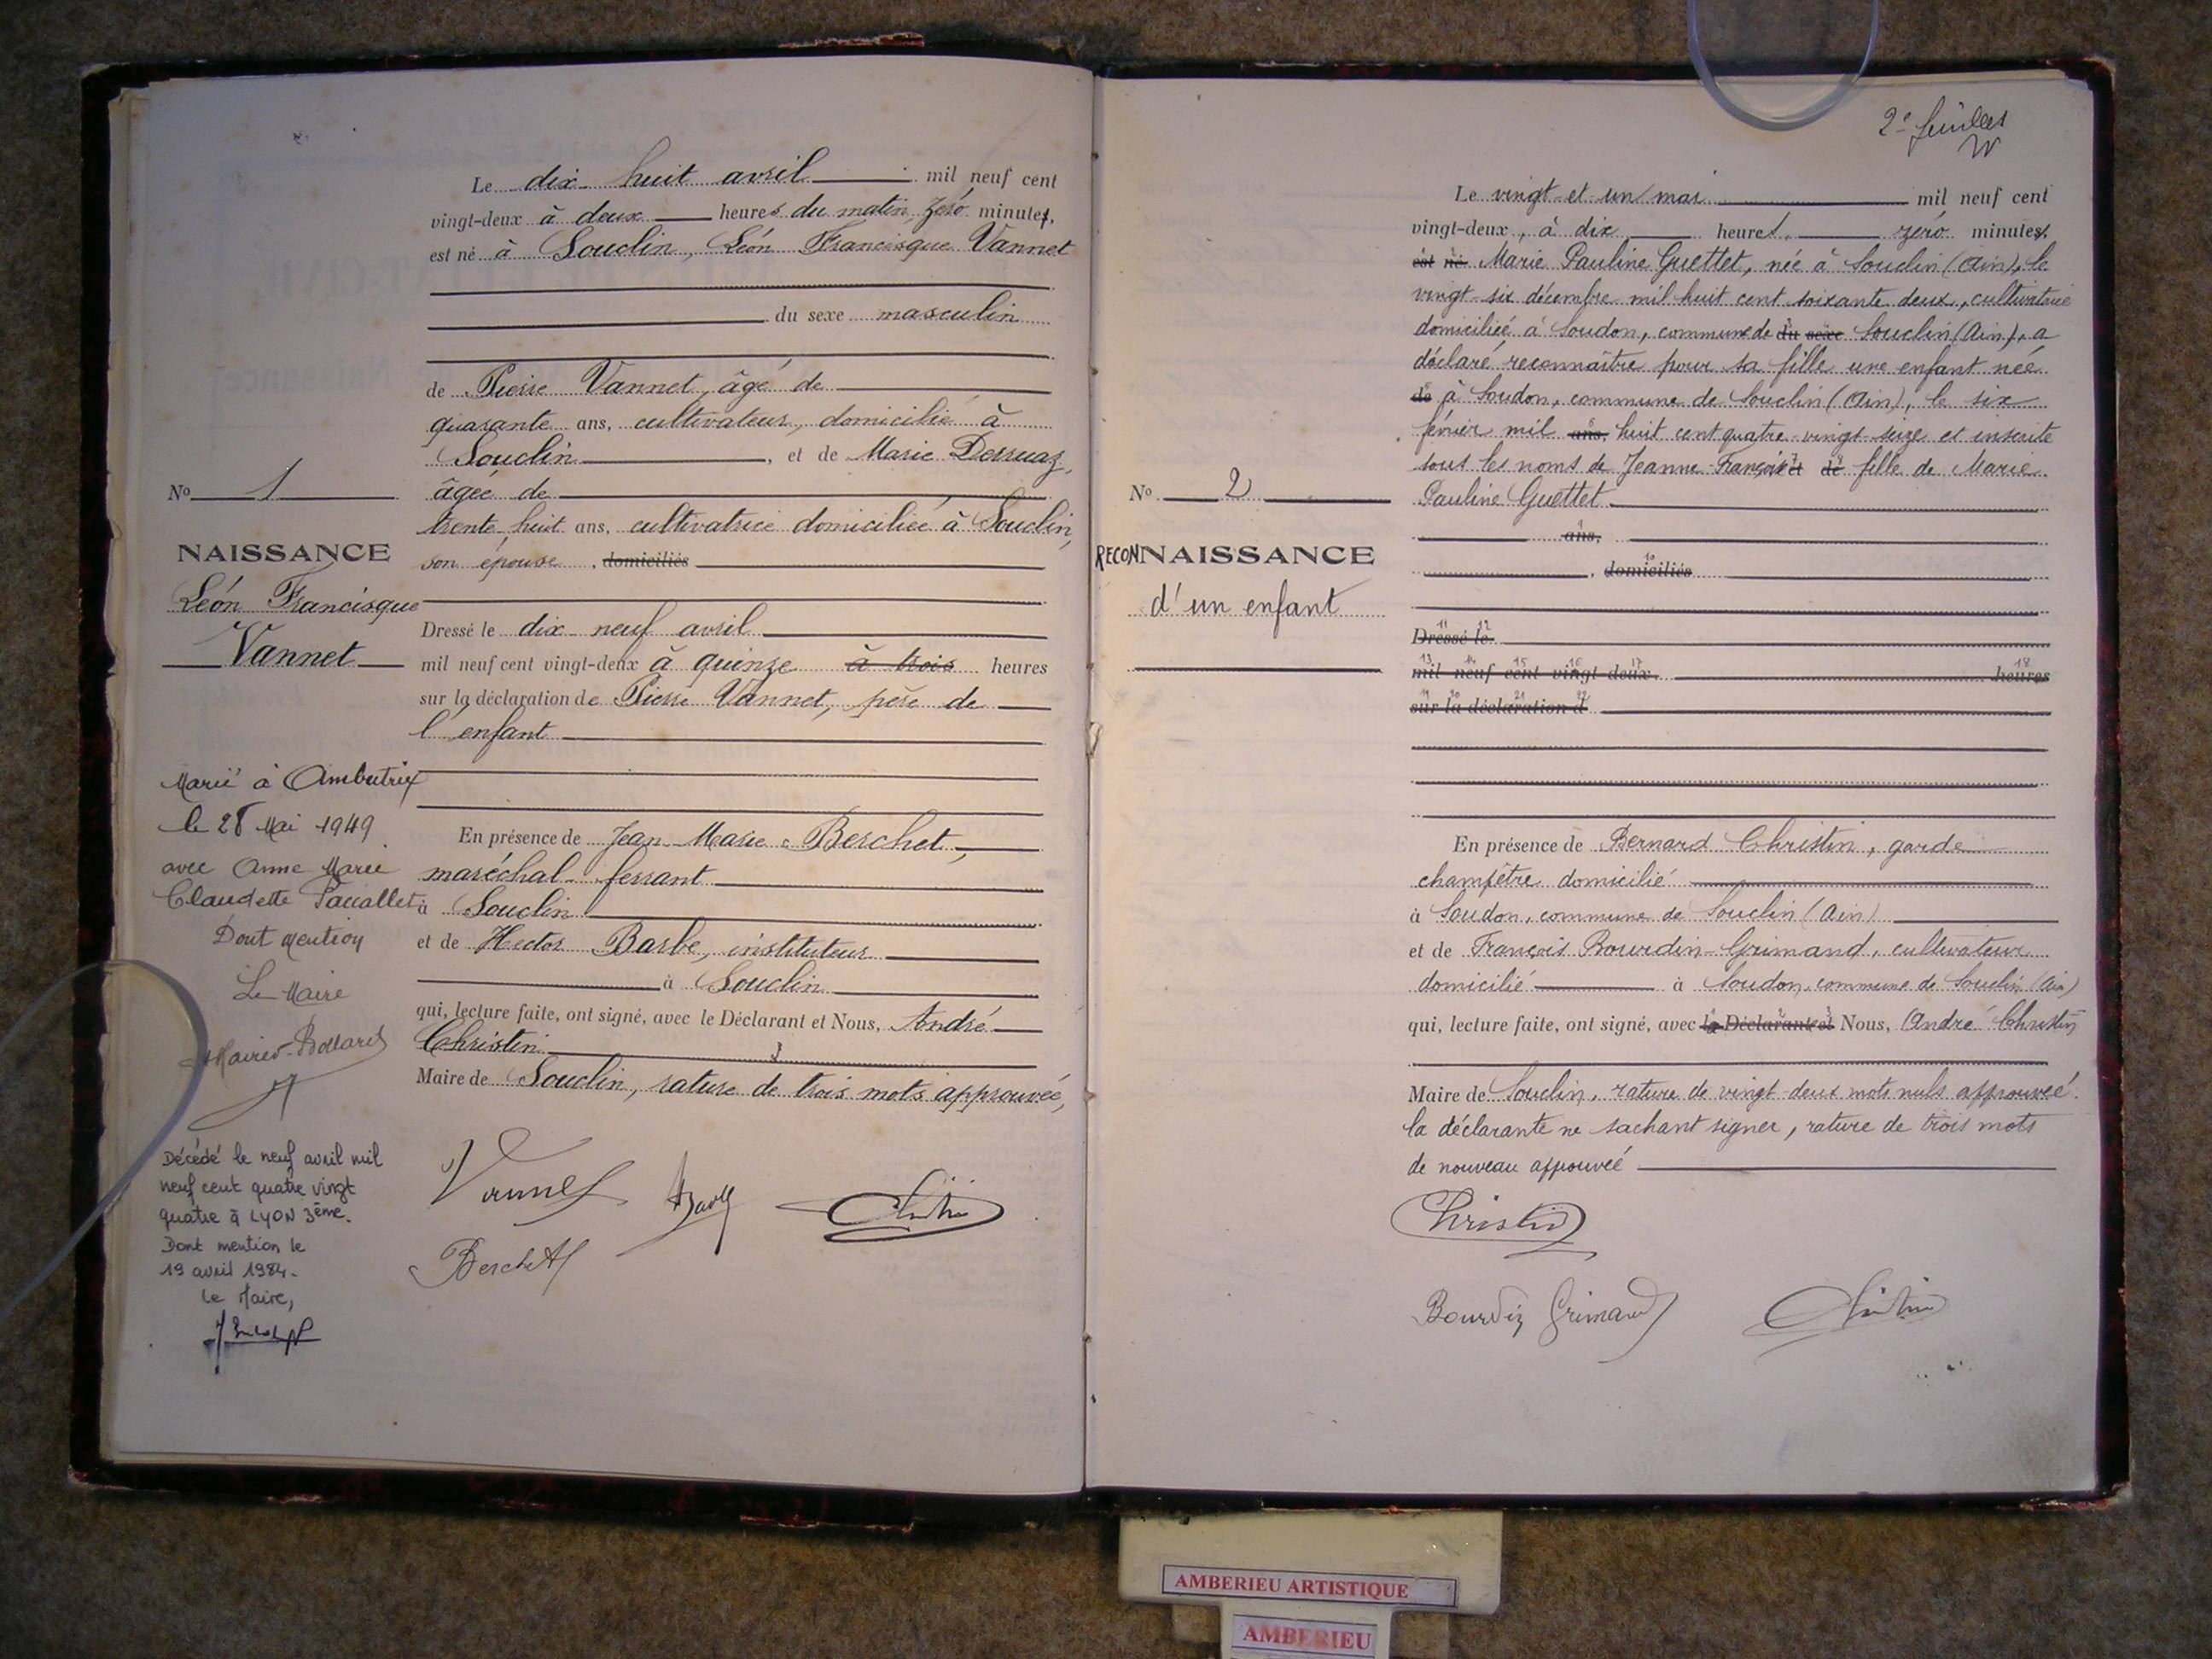 Le dix-huit avril mil neuf cent
vingt-deux à deux heures du matin zéro minutes,
est né à Souclin, Léon Francisque Vannet
du sexe masculin
de Pierre Vannet, âgé de
quarante ans, cultivateur, domicilié à
Souclin, et de Marie Derruaz,
âgée de
trente huit ans, cultivatrice domiciliée à Souclin,
son épouse, domiciliés
Dressé le dix-neuf avril
mil neuf cent vingt-deux à quinze à trois heures
sur la déclaration de Pierre Vannet, père de
l'enfant
En présence de Jean-Marie Berchet,
maréchal-ferrant
à Souclin
et de Hector Barbe, instituteur
à Souclin
qui, lecture faite, ont signé, avec le Déclarant et Nous, André
Christin
Maire de Souclin, rature de trois mots approuvée,
Vannet
Berchet
No 1
NAISSANCE
Léon Francisque
Vannet
Marié à Ambutrix
le 28 Mai 1949
avec Anne Marie
Claudette Paccallet
Dont mention
Le Maire
Décédé le neuf avril mil
neuf cent quatre vingt
quatre à LYON 3ème.
Dont mention le
19 avril 1984.
Le Maire,
2e feuillet
Le vingt-et-un mai mil neuf cent
vingt-deux, à dix heures, zéro minutes,
est né Marie Pauline Guettet, née à Souclin (Ain), le
vingt-six décembre mil huit cent soixante deux, cultivatrice
domiciliée à Soudon, commune de du sexe Souclin (Ain), a
déclaré reconnaître pour sa fille une enfant née
de à Soudon, commune de Souclin (Ain), le six
février mil ans, huit cent quatre-vingt-seize et inscrite
sous les noms de Jeanne-Françoise et de fille de Marie
Pauline Guettet
ans,
domiciliés
Dressé le
mil neuf cent vingt-deux heures
sur la déclaration d
En présence de Bernard Christin, garde
champêtre domicilié
à Soudon, commune de Souclin (Ain)
et de François Bourdin-Grimand, cultivateur
domicilié à Soudon, commune de Souclin (Ain)
qui, lecture faite, ont signé, avec le Déclarant et Nous, André Christin
Maire de Souclin, rature de vingt-deux mots nuls approuvée.
la déclarante ne sachant signer, rature de trois mots
de nouveau approuvée
Christin
Bourdin Grimand
No 2
RECONNAISSANCE
d'un enfant
AMBERIEU ARTISTIQUE
AMBERIEU